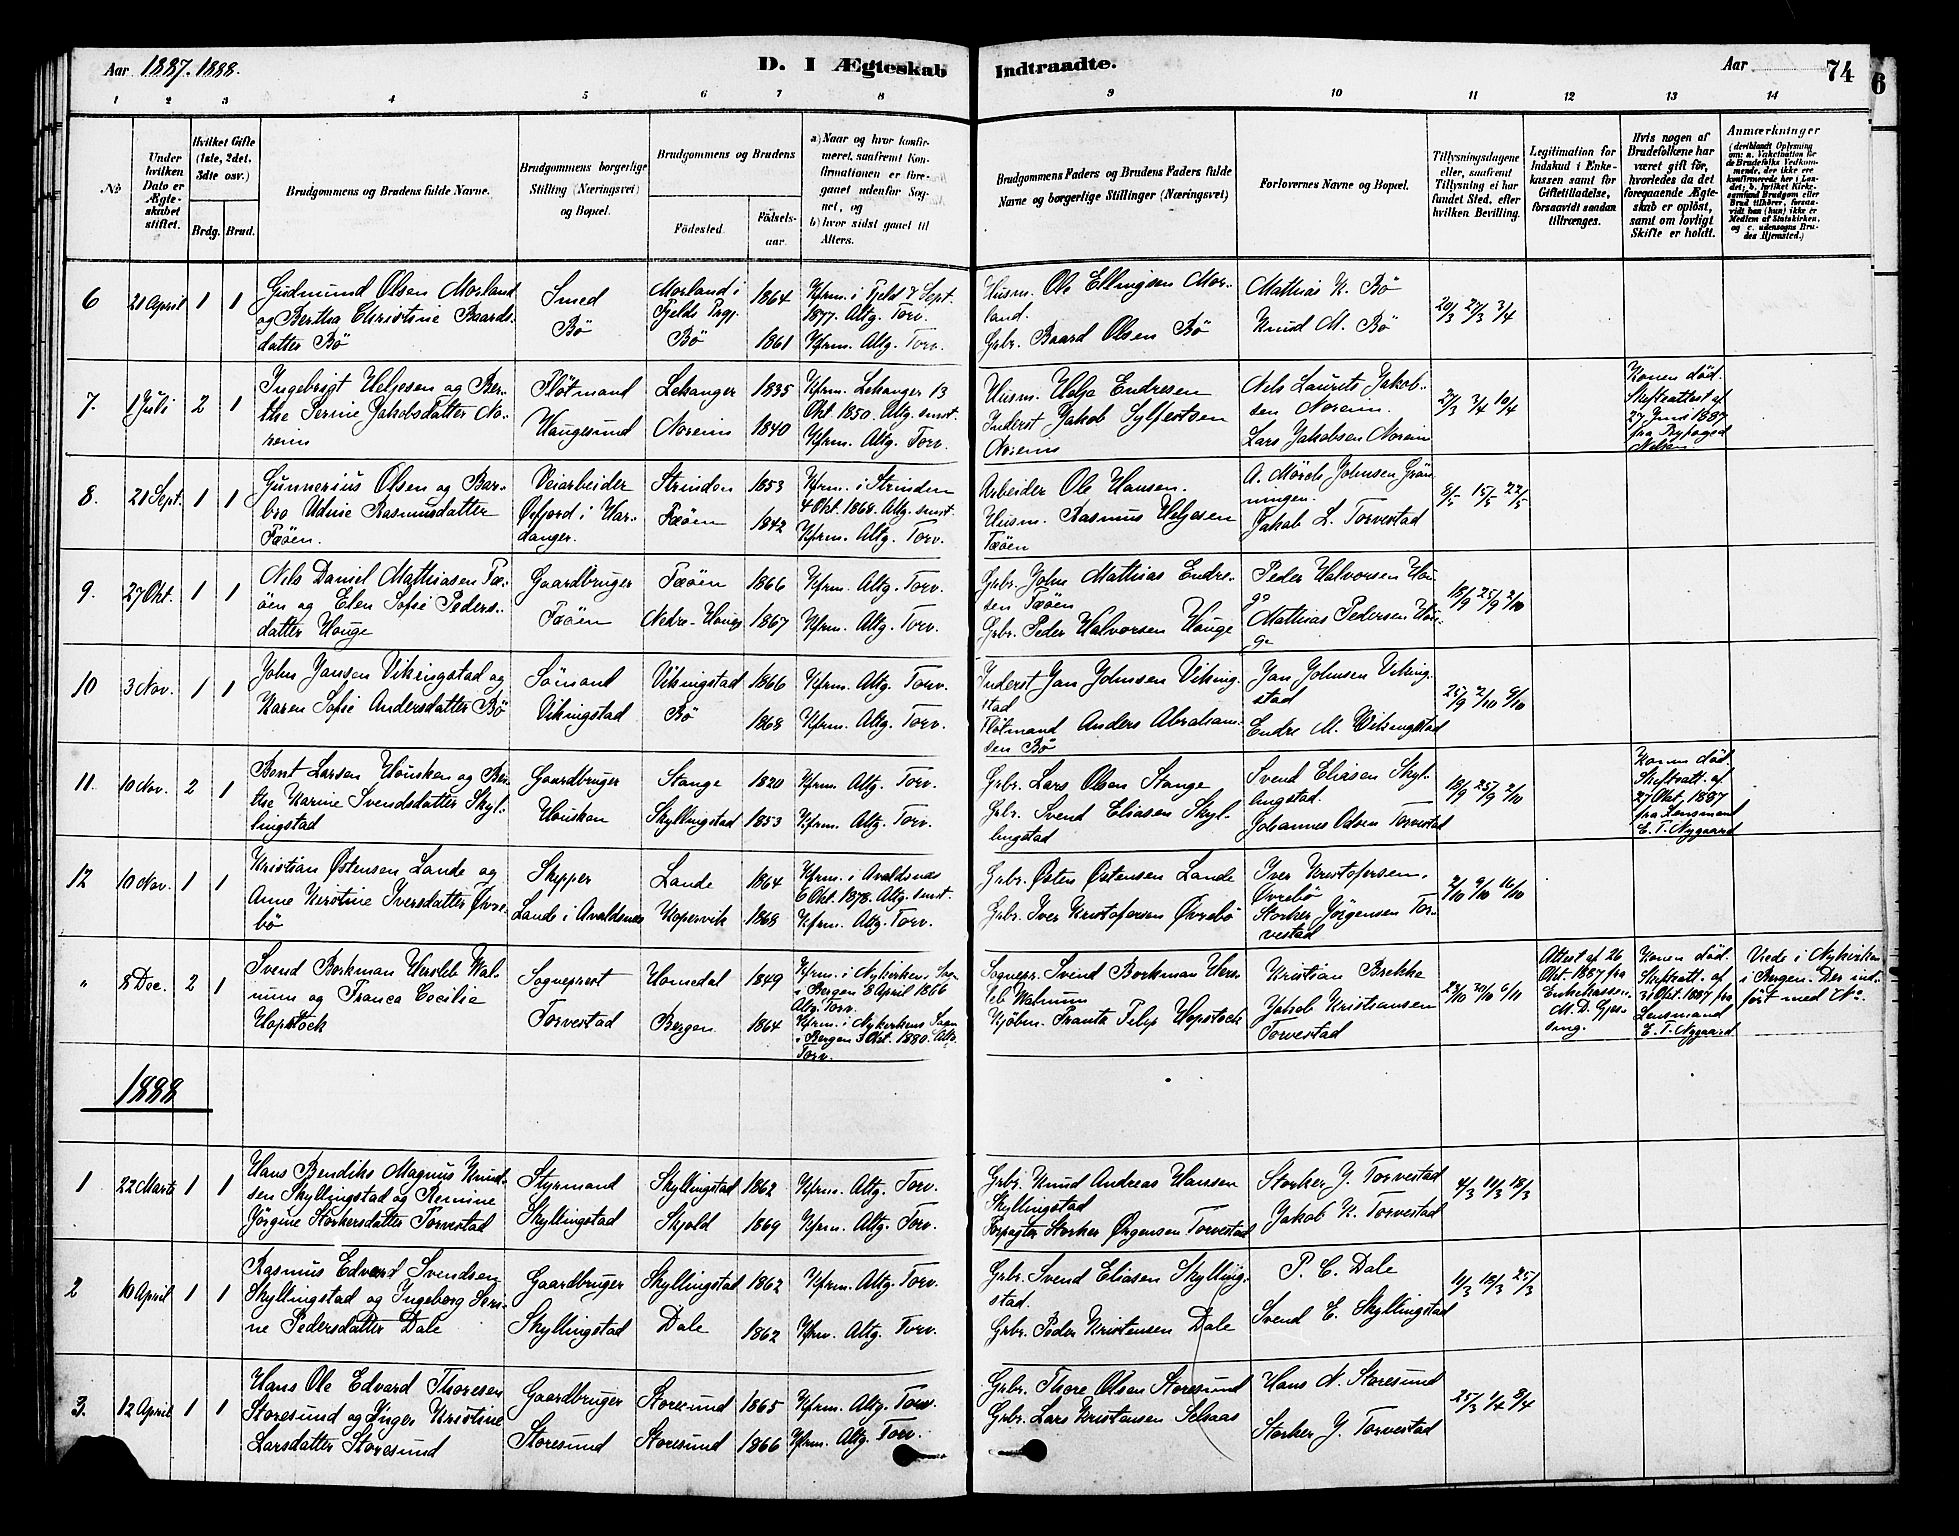 Aar 1887. 1888.
D. I Ægteskab Indtraadte.
Aar
74
6
1 2 3 4 5 6 7 8 9 10 11 12 13 14
No
Under hvilken Dato er Ægteskabet stiftet.
Hvilket Gifte (1ste, 2det, 3dte osv.)
Brdg. Brud.
Brudgommens og Brudens fulde Navne.
Brudgommens borgerlige Stilling (Næringsvei) og Bopæl.
Brudgommens og Brudens
Födested. Födselsaar.
a) Naar og hvor konfirmeret, saafremt Konfirmationen er foregaaet udenfor Sognet, og
b) hvor sidst gaaet til Alters.
Brudgommens Faders og Brudens Faders fulde Navne og borgerlige Stillinger (Næringsvei)
Forlovernes Navne og Bopæl.
Tillysningsdagene eller, saafremt Tillysning ei har fundet Sted, efter hvilken Bevilling.
Legitimation for Indskud i Enkekassen samt for Giftetilladelse, forsaavidt saadan tiltrænges.
Hvis nogen af Brudefolkene har været gift för, hvorledes da det foregaaende Ægteskab er oplöst, samt om lovligt Skifte er holdt.
Anmærkninger
(deriblandt Oplysning om: a. Vakcination for de Brudefolks Vedkommende, der ikke ere konfirmerede her i Landet; b. hvilket Kirkesamfund Brudgom eller Brud tilhører, forsaavidt han (hun) ikke er Medlem af Statskirken, og c. udensogns Brudes Hjemsted.)
6 21 April 1 1
Gudmund Olsen Morland
og Bertha Christine Baards-
datter Bö
Smed
Bö
Morland i
Fjelds Prgj.
Bö
1864
1861
Kfrm. i Fjeld 7 Sept.
1877. Altg. Torv.
Kfrm. Altg. Torv.
Husm. Ole Ellingsen Mor-
land.
Grbr. Baard Olsen Bö
Mathias K. Bö
Knud M. Bö
20/3 27/3 3/4
7. 1 Juli 2 1
Ingebrigt Heljesen og Ber-
the Serine Jakobsdatter No-
reim
Flötmand
Haugesund
Lekanger
Noreim
1835
1840
Kfrm. Lekanger 13
Okt. 1850. Altg. smst.
Kfrm. Altg. Torv.
Husm. Helje Endresen
Inderst Jakob Sylfestsen
Noreim
Nels Laurits Jakob-
sen Noreim.
Lars Jakobsen Noreim
27/3 3/4 10/4
Konen död.
Skifteattest af
27 Juni 1887
fra Byfoged
Nelsen
8. 21 Sept. 1 1
Gunnerius Olsen og Ber-
bro Udine Rasmusdatter
Fæöen.
Veiarbeider
Øifjord i Har-
danger.
Strinden
Fæöen
1853
1842
Kfrm. i Strinden
4 Okt. 1868. Altg. smst.
Kfrm. Altg. Torv.
Arbeider Ole Hansen.
Husm. Rasmus Heljesen
Fæöen
A. Mörch Johnsen Grön-
ningen.
Jakob L. Torvestad
8/5 15/5 22/5
9. 27 Okt. 1 1
Nels Daniel Mathiasen Fæ-
öen og Elen Sofie Peders-
datter Hauge
Gaardbruger
Fæöen
Fæöen
Nedre-Hauge
1866
1867
Kfrm. Altg. Torv.
Kfrm. Altg. Torv.
Grbr. John Mathias Endre-
sen Fæöen
Grbr. Peder Halvorsen Hauge
Peder Halvorsen Hau-
ge
Mathias Pedersen Hau-
ge
18/9 25/9 2/10
10 3 Nov. 1 1
John Jansen Vikingstad og
Karen Sofie Andersdatter Bö
Sömand
Vikingstad
Vikingstad
Bö
1866
1868
Kfrm. Altg. Torv.
Kfrm. Altg. Torv.
Inderst Jan Johnsen Viking-
stad
Flötmand Anders Abraham-
sen Bö
Jan Johnsen Viking-
stad
Endre M. Vikingstad
25/9 2/10 9/10
11. 10 Nov. 2 1
Bent Larsen Hausken og Ber-
the Karine Svendsdatter Skyl-
lingstad
Gaardbruger
Hausken
Stange
Skyllingstad
1820
1853
Kfrm. Altg. Torv.
Kfrm. Altg. Torv.
Grbr. Lars Olsen Stange
Grbr. Svend Eliasen Skyl-
lingstad
Svend Eliasen Skyl-
lingstad.
Johannes Odsen Torvestad
18/9 25/9 2/10
Konen död.
Skifteatt. af
27 Okt. 1887
fra Lensmand
E. T. Nygaard
12 10 Nov. 1 1
Kristian Østensen Lande og
Anne Kirstine Iversdatter Øvre-
bö
Skipper
Lande i Avaldsnes
Lande
Kopervik
1864
1868
Kfrm. i Avaldsnes
6 Okt. 1878. Altg. smst.
Kfrm. Altg. Torv.
Grbr. Østen Østensen Lande
Grbr. Iver Kristofersen Øvrebö
Iver Kristofersen.
Øvrebö
Storker Jörgensen Tor-
vestad
2/10 9/10 16/10
" 8 Dec. 2 1
Svend Borkman Hersleb Wal-
num og Franca Cecilie
Hopstock
Sogneprest
Torvestad
Homedal
Bergen
1849
1864
Kfrm. i Nykirkens Sogn
i Bergen 8 April 1866
Altg. Torv.
Kfrm. i Nykirkens Sogn
i Bergen 3 Okt. 1880. Altg.
Torv.
Sognepr. Svend Borkman Hers-
leb Walnum
Kjöbm. Frantz Filip Hopstock
Kristian Brekke
Jakob Kristiansen
Torvestad
23/10 30/10 6/11
Attest af 26
Okt. 1887 fra
Enkekassen.
M. D. Gjes-
sing.
Konen död.
Skifteatt. af
31 Okt. 1887 fra
Lensmand
E. T. Nygaard
Viede i Nykirken
i Bergen. Der ind-
fört med No.
1888
1 22 Marts 1 1
Hans Bendiks Magnus Knud-
sen Skyllingstad og Remine
Jörgine Storkersdatter Torvestad
Styrmand
Skyllingstad
Skyllingstad
Skjold
1862
1869
Kfrm. Altg. Torv.
Kfrm. Altg. Torv.
Grbr. Knud Andreas Hansen
Skyllingstad
Forpagter Storker Ørgensen Torvestad
Storker J. Torvestad
Jakob K. Torvestad
4/3 11/3 18/3
2 10 April 1 1
Rasmus Edvard Svendsen
Skyllingstad og Ingeborg Seri-
ne Pedersdatter Dale
Gaardbruger
Skyllingstad
Skyllingstad
Dale
1862
1862
Kfrm. Altg. Torv.
Kfrm. Altg. Torv.
Grbr. Svend Eliasen Skylling-
stad.
Grbr. Peder Kristensen Dale
P. C. Dale
Svend E. Skyllingstad
11/3 18/3 25/3
3. 12 April 1 1
Hans Ole Edvard Thoresen
Storesund og Inger Kristine
Larsdatter Storesund
Gaardbruger
Storesund
Storesund
Storesund
1865
1866
Kfrm. Altg. Torv.
Kfrm. Altg. Torv.
Grbr. Thore Olsen Storesund
Grbr. Lars Kristensen Selsaas
Hans N. Storesund
Storker J. Torvestad
25/3 1/4 8/4